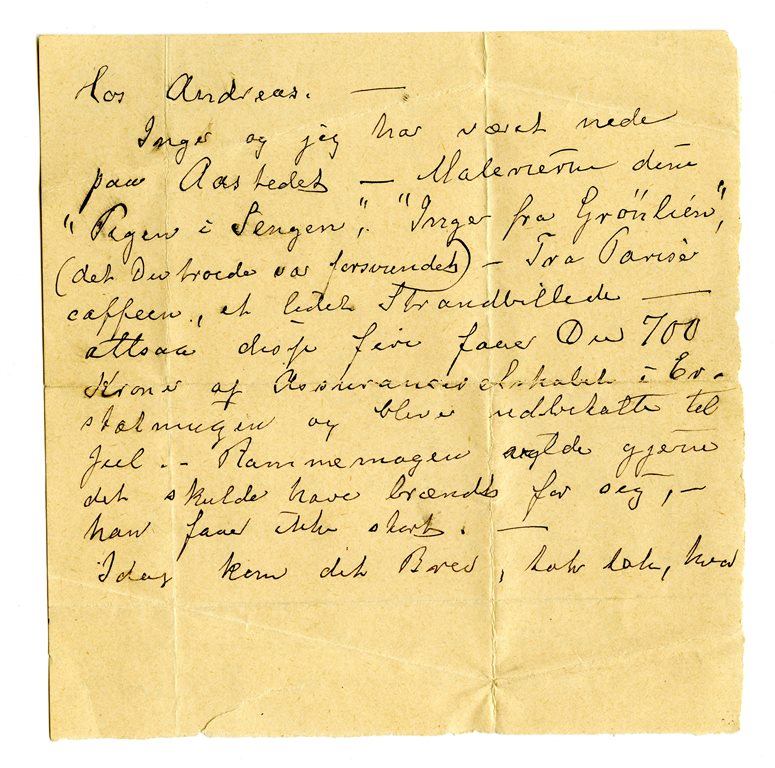 Hos Andreas. —
Inger og jeg har været nede
paa Aastedet — Malerierne dine
"Pigen i Sengen", "Inger fra Grönlien",
(det Du troede var forsvundet) – Fra Pariser
caffeen, et lidet Strandbillede —
altsaa disse fire faaer Du 700
Kroner af Assuranceselskabet i Er-
statningen og bliver udbetalte til
Juel. – Rammemagen vilde gjerne
det skulde have brændt for sig, –
han faaer ikke stort. —
Idag kom dit Brev, tak tak, hvor